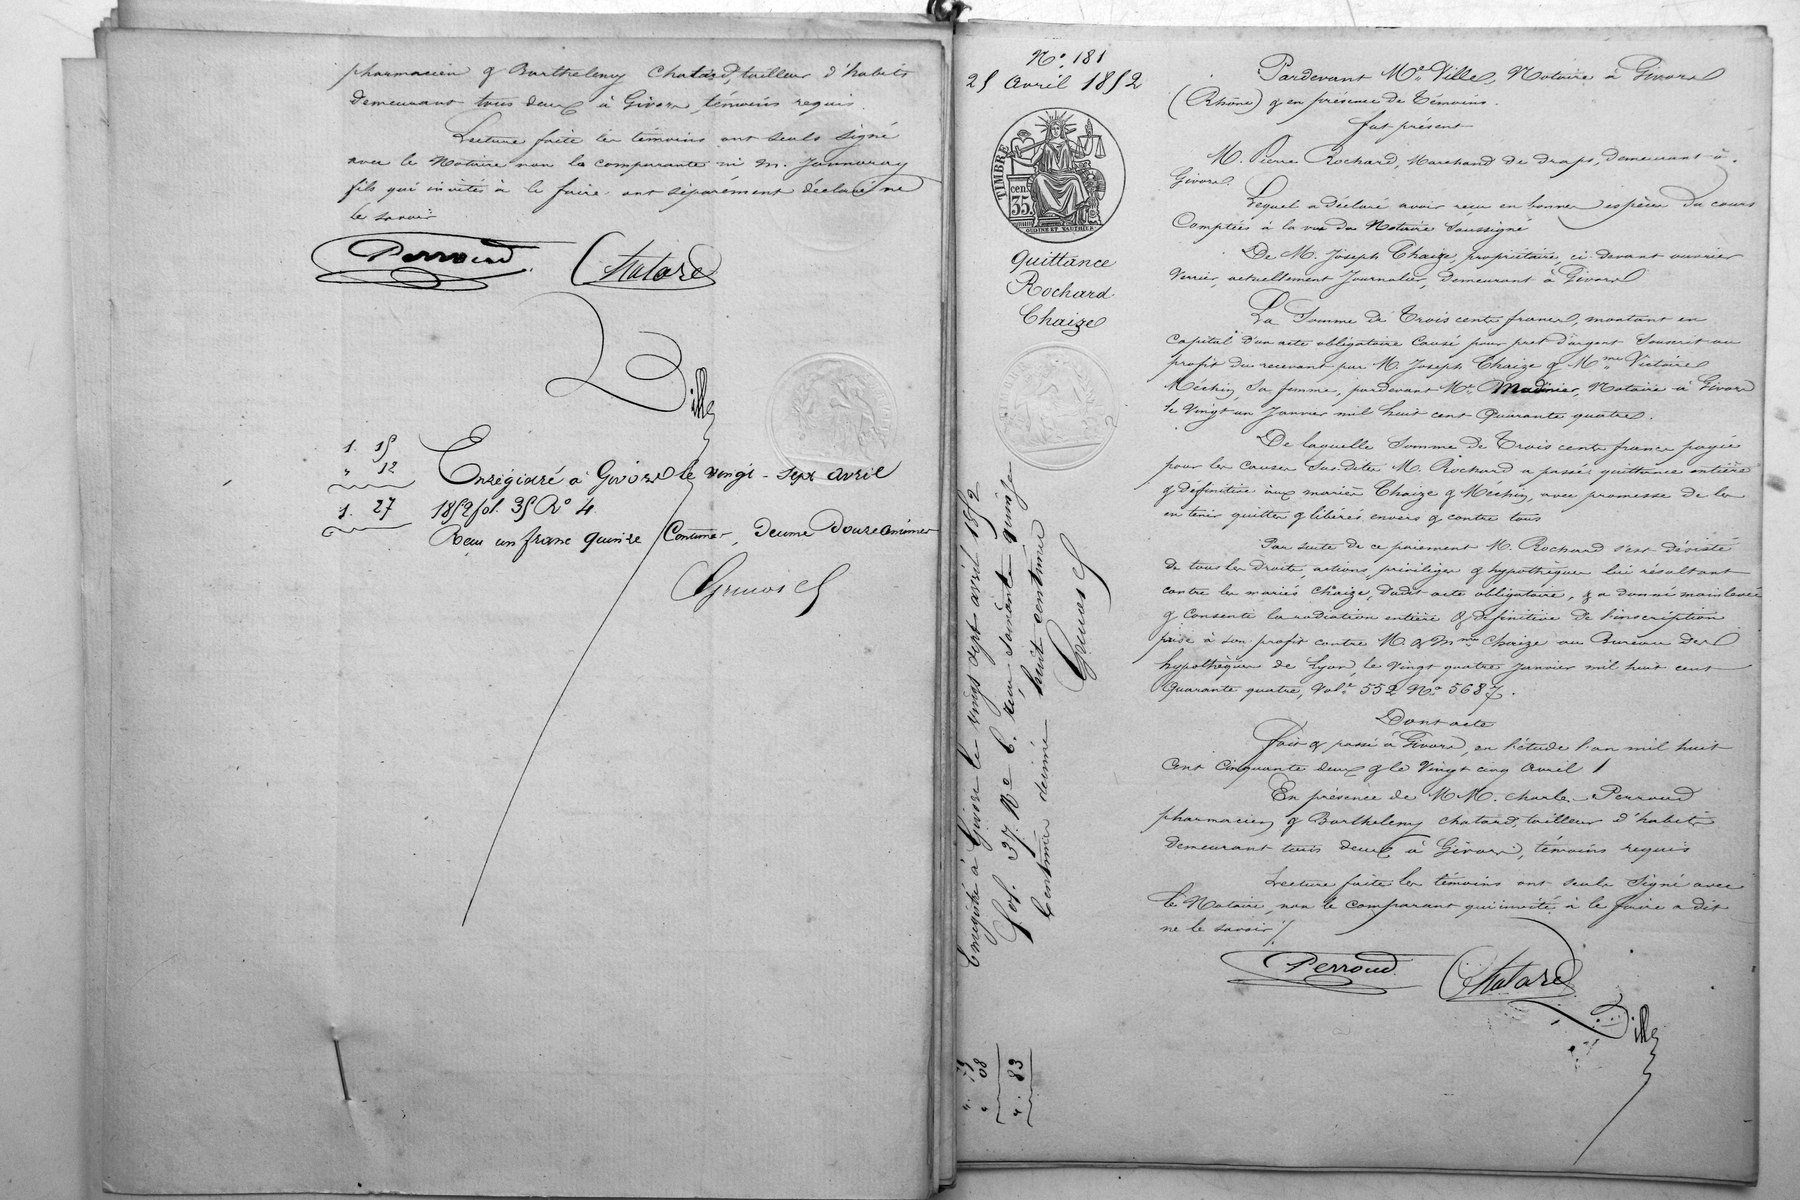 pharmacien & Barthelemy Chatard, tailleur d'habits
Demeurant tous deux à Givors, témoins requis.
Lecture faite les témoins ont seuls signé
avec le Notaire non la comparante ni M. Jannoray
fils qui invités à le faire ont séparément déclaré ne
le savoir
Perroud
Chatard
Ville
1. 15
" 12
1. 27
Enregistré à Givors le vingt-sept avril
1852 fol. 35 Ro 4
Reçu un franc quinze Centimes, decime Douze centimes
No. 181
25 Avril 1852
TIMBRE
cen.
35.
OUDINE ET VAUTHIER
Quittance
Rochard
Chaize
Enregistré à Givors le vingt sept avril 1852
fol. 37 Ro C. reçu soixante quinze
Centimes decime huit centimes
". 75
" 08
". 83
Pardevant Me. Ville, Notaire à Givors
(Rhône) & en présence de Témoins.
fut présent
M. Pierre Rochard, Marchand de draps, demeurant à
Givors.
Lequel a déclaré avoir reçu en bonnes espèces du cours
Comptées à la vue du Notaire Soussigné
De M. Joseph Chaize, propriétaire, ci devant ouvrier
Verrier, actuellement Journalier, Demeurant à Givors
La Somme de Trois cents francs, montant en
capital d'un acte obligatoire Causé pour pret d'argent Souscrit au
profit du recevant par M. Joseph Chaize & Mme. Victoire
Méchin, Sa femme, pardevant Me. Madinier, Notaire à Givors
le Vingt un Janvier mil huit cent Quarante quatre.
De laquelle Somme de Trois cents francs payée
pour les causes Susdites M. Rochard a passé quittance entière
& définitive aux mariés Chaize & Méchin, avec promesse de les
en tenir quittes & libérés envers & contre tous
Par suite de ce paiement M. Rochard s'est désisté
de tous les Droits, actions, privilèges & hypothèques lui résultant
contre les mariés Chaize, dudit acte obligatoire, & a donné mainlevée
& consenti la radiation entière & définitive de l'inscription
prise à son profit contre M. & Mme Chaize au Bureau des
hypothèques de Lyon, le Vingt quatre Janvier mil huit cent
Quarante quatre, Vole. 552 No. 5687.
Dont acte
Fait & passé à Givors, en l'étude l'an mil huit
Cent Cinquante deux & le Vingt cinq Avril
En présence de MM. Charles Perroud
pharmacien & Barthelemy Chatard, tailleur d'habits
Demeurant tous deux à Givors, témoins requis
Lecture faite les témoins ont seuls Signé avec
le Notaire, non le comparant qui invité à le faire a dit
ne le savoir
Perroud
Chatard
Ville